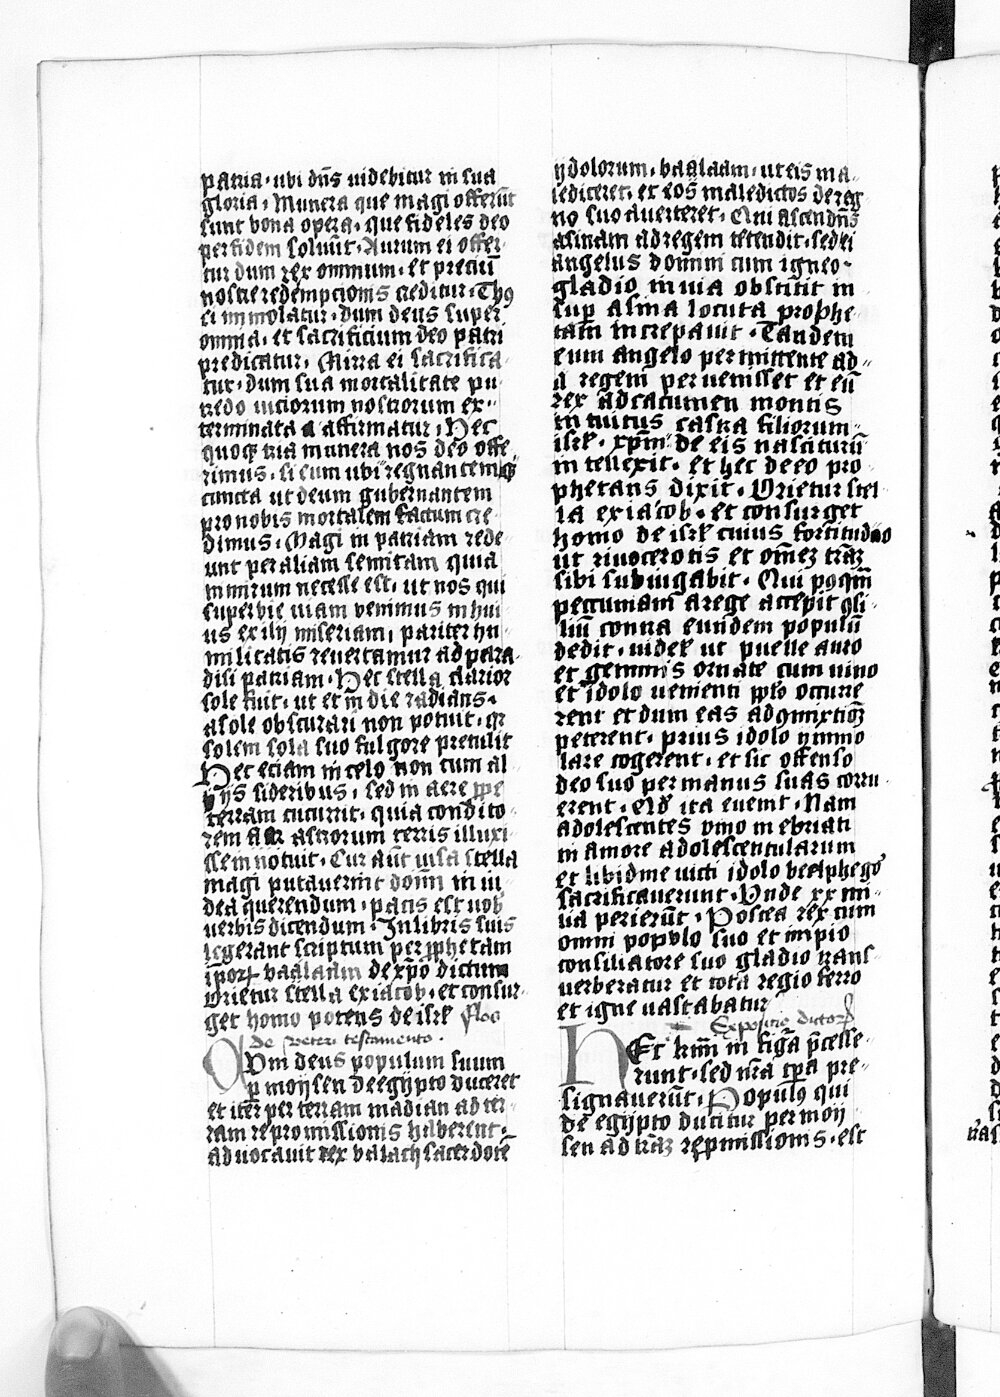 patria · ubi dn̄s uidebitur in sua
gloria · Munera que magi offerūt
sunt bona opera · que fideles deo
per fidem soluūt · Aurum ei offer-
tur dum rex omnium · et preciū
nostre redempcionis creditur · Thꝯ
ei immolatur · dum deus super
omnia · et sacrificium deo patri
predicatur · Mirra ei sacrifica-
tur · dum sua mortalitate pu-
tredo uiciorum nostrorum ex-
terminata affirmatur · Hec
quoqꝫ tria munera nos deo offe-
rimus · si eum ubi regnantemqꝫ
cuncta ut deum gubernantem
pro nobis mortalem factum cre-
dimus · Magi in patriam rede-
unt per aliam semitam quia
nimirum necesse est · ut nos qui
superbie uiam uenimus in hui-
us exilij miseriam, pariter hu-
militatis reuertamur ad para-
disi patriam · Hec stella clarior
sole fuit · ut et in die radians ·
a sole obscurari non potuit · qr
solem sola suo fulgore pretulit
Hec eciam in celo non cum al-
ijs sideribus · sed in aere ꝓpe
terram cucurrit · quia condito-
rem astrorum terris illuxi-
sse innotuit · Cur aūt uisa stella
magi putauerint domī in iu-
dea querendum · pacis est uob
uerbis dicendum · In libris suis
legerant scriptum per ꝓphetam
ip̄oꝝ baalaam de xp̄o dictum
Orietur stella ex iacob · et consur-
get homo potens de isrł
de veteri testamento ·
Qvm deus populum suum
ꝑ moysen de egypto duceret
et iter per terram madian ad ter-
ram repromissionis haberent ·
aduocauit rex balach sacerdotē
ydolorum · baalaam · ut eis ma-
lediceret · et eos maledictos de reg-
no suo auerteret · Qui ascendn̄s
asinam ad regem tetendit · sed ei
angelus domini cum igneo -
gladio in uia obstitit in
suꝑ asina locuta prophe-
tam increpauit · Tandem
cum angelo permittente ad
a regem peruenisset et eū
rex ad cacumen montis
in tuitus castra filiorum
isrł · xp̄m de eis nasciturū
intellexit · et hec de eo pro-
phetans dixit · Orietur stel-
la ex iacob · et consurget
homo de isrł cuius fortitudo
ut rinocerotis et om̄ez trāz
sibi subiugabit · Qui poqm̄
peccuniam a rege accepit ꝯsi-
liū contra eundem populū
dedit · uidelꝫ ut puelle auro
et gemmis ornate cum uino
et idolo uenienti pplo occurre-
rent et dum eas ad ꝯmixtioꝫ
peterent · prius idolo ymmo-
lare cogerent · et sic offenso
deo suo per manus suas corru-
erent · Qd̄ ita euenit · Nam
adolescentes uino inebriati
in amore adolescentularum
et libidine uicti idolo beelphegoꝛ
sacrificauerunt · Vnde xx mi-
lia perierūt · Postea rex cum
omni populo suo et impio
consiliatore suo gladio trans-
uerberatur et tota regio ferro
et igne uastabatur
Expositio
HEc krm̄ in figa p̄cesse-
runt · sed nr̄a tp̄a pre-
signauerūt · Populꝰ qui
de egypto ducitur per moy-
sen ad trāz reꝓmissionis · est